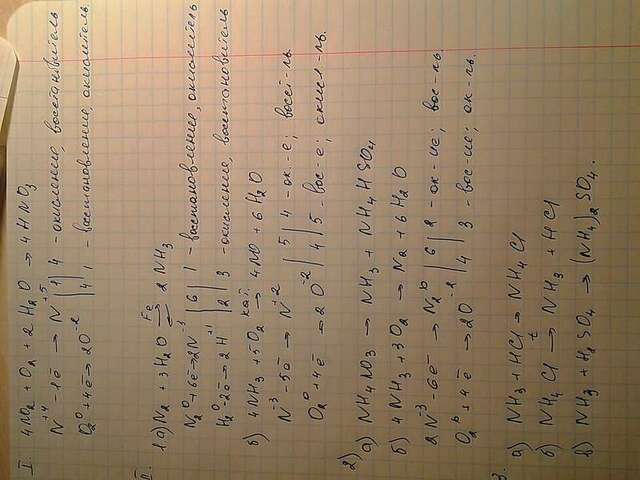 I. 4NO₂ + O₂ + 2H₂O → 4HNO₃
N⁺⁴ - 1ē → N⁺⁵ | 1 | 4 - окисление, восстановитель
O₂⁰ + 4ē → 2O⁻² | 4 | 1 - восстановление, окислитель.
II.
1a) N₂ + 3H₂O ⇄ 2NH₃
Fe
N₂⁰ + 6ē → 2N⁻³ | 6 | 1 - восстановление, окислитель
H₂⁰ - 2ē → 2H⁺¹ | 2 | 3 - окисление, восстановитель
б) 4NH₃ + 5O₂ кат. → 4NO + 6H₂O
N⁻³ - 5ē → N⁺² | 5 | 4 - ок-е; восст-ль
O₂⁰ + 4ē → 2O⁻² | 4 | 5 - вос-е; окисл-ль.
2)
а) NH₄NO₃ → NH₃ + NH₄HSO₄
б) 4NH₃ + 3O₂ → N₂ + 6H₂O
2N⁻³ - 6ē → N₂⁰ | 6 | 2 - ок-ие; вос-ль
O₂⁰ + 4ē → 2O⁻² | 4 | 3 - вос-ие; ок-ль.
3.
а) NH₃ + HCl → NH₄Cl
б) NH₄Cl t → NH₃ + HCl
в) NH₃ + H₂SO₄ → (NH₄)₂SO₄.